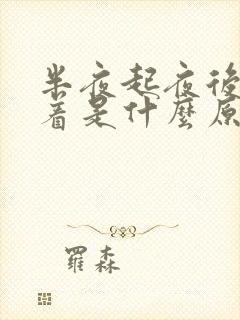 半夜起夜後
着是什麼原
羅森